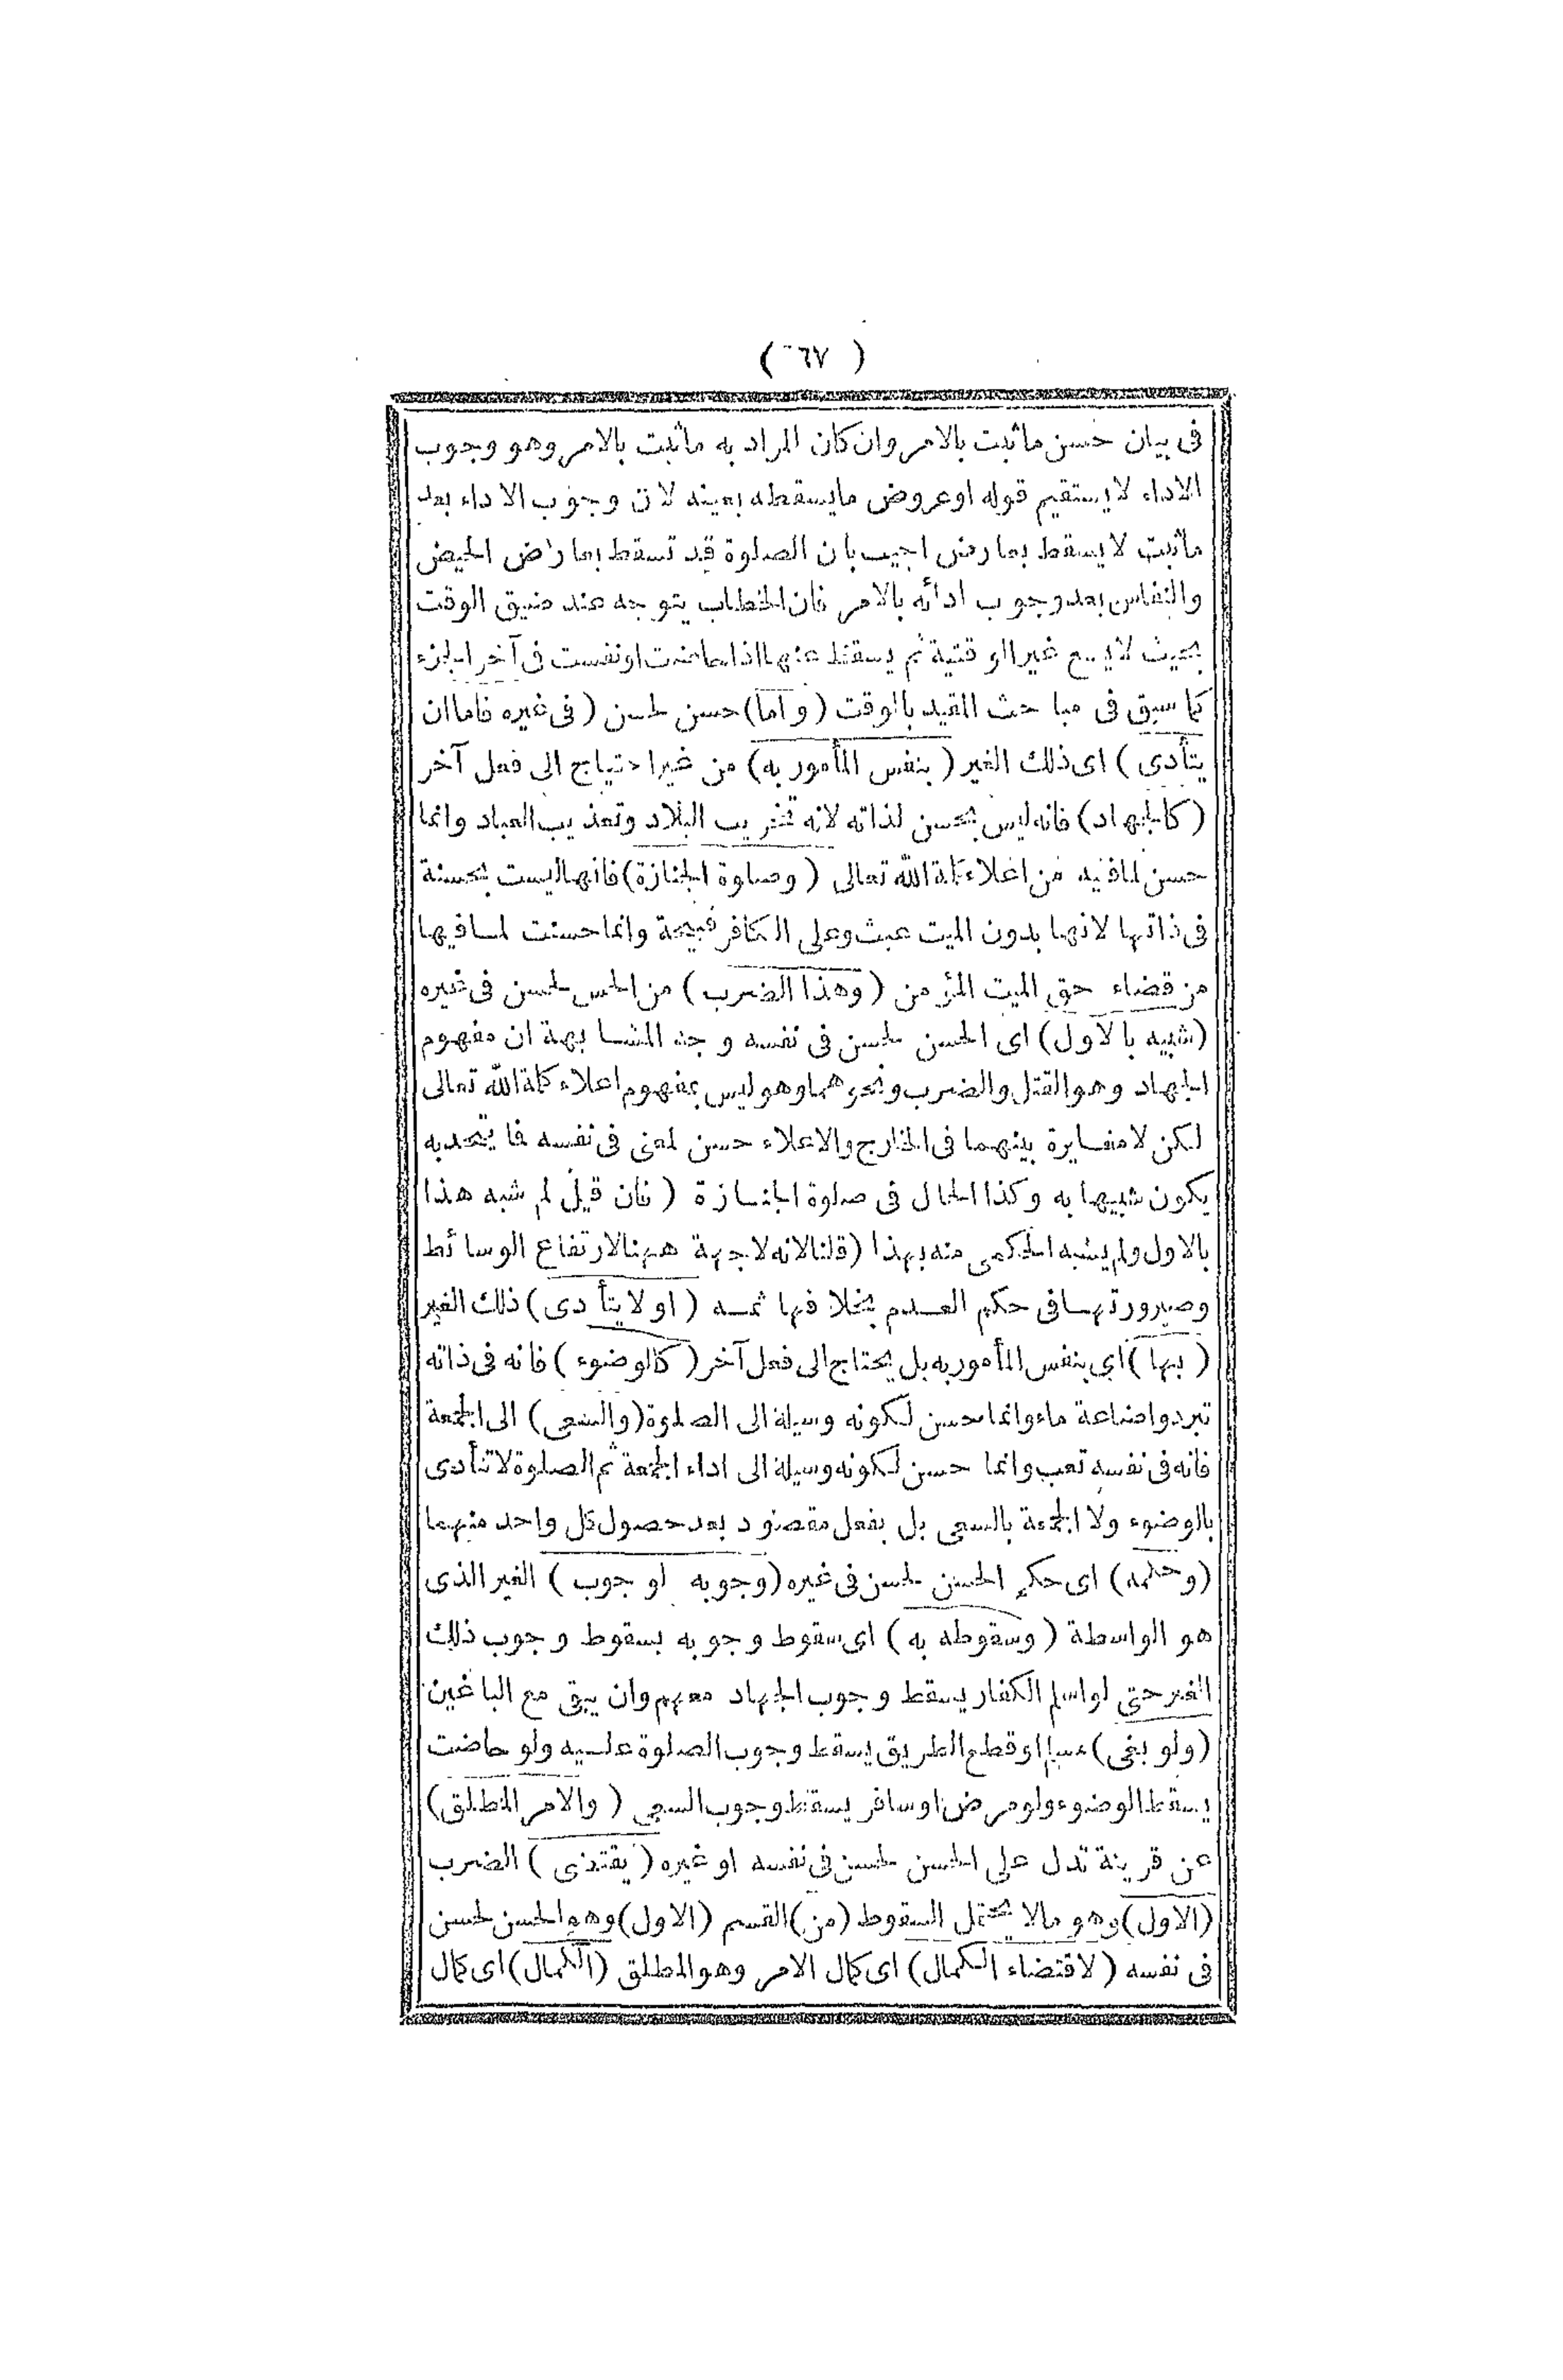 ( ٦٧ )
فى بيان حسن ماثبت بالامر وان كان المراد به ماثبت بالامر وهو وجوب
الاداء لايستقيم قوله اوعروض مايسقطه بعينه لان وجوب الاداء بعد
ماثبت لايسقط بعارض اجيب بان الصلوة قد تسقط بعارض الحيض
والنفاس بعد وجوب ادائه بالامر فان الخطاب يتوجه عند ضيق الوقت
بحيث لايسع غير الوقتية ثم يسقط عنها اذا حاضت اونفست فى آخر الجزء
كما سبق فى مباحث المقيد بالوقت (واما) حسن لحسن (فى غيره فاما ان
يتأدى) اى ذلك الغير (بنفس المأمور به) من غير احتياج الى فعل آخر
(كالجهاد) فانه ليس بحسن لذاته لانه تخريب البلاد وتعذيب العباد وانما
حسن لما فيه من اعلاء كلة الله تعالى (وصلوة الجنازة) فانها ليست بحسنة
فى ذاتها لانها بدون الميت عبث وعلى الكافر قبيحة وانما حسنت لما فيها
من قضاء حق الميت المؤمن (وهذا الضرب) من الحسن لحسن فى غيره
(شبيه بالاول) اى الحسن لحسن فى نفسه وجه المشابهة ان مفهوم
الجهاد وهو القتل والضرب ونحوهما وهو ليس بمفهوم اعلاء كلة الله تعالى
لكن لامغايرة بينهما فى الخارج والاعلاء حسن لمعنى فى نفسه فما يتحد به
يكون شبيها به وكذا الحال فى صلوة الجنازة (فان قيل لم شبه هذا
بالاول ولم يشبه الحكمى منه بهذا (قلنا لانه لاجهة ههنا لارتفاع الوسائط
وصيرورتها فى حكم العدم بخلافها ثمه (او لايتأدى) ذلك الغير
(بها) اى بنفس المأمور به بل يحتاج الى فعل آخر (كالوضوء) فانه فى ذاته
تبرد واضاعة ماء وانما حسن لكونه وسيلة الى الصلوة (والسعى) الى الجمعة
فانه فى نفسه تعب وانما حسن لكونه وسيلة الى اداء الجمعة ثم الصلوة لاتتأدى
بالوضوء ولا الجمعة بالسعى بل بفعل مقصود بعد حصول كل واحد منهما
(وحكمه) اى حكم الحسن لحسن فى غيره (وجوبه لوجوب) الغير الذى
هو الواسطة (وسقوطه به) اى سقوط وجوبه بسقوط وجوب ذلك
الغير حتى لو اسلم الكفار يسقط وجوب الجهاد معهم وان يبقى مع الباغين
(ولو بغى) مسلم او قطع الطريق يسقط وجوب الصلوة عليه ولو حاضت
يسقط الوضوء ولو مرض او سافر يسقط وجوب السعى (والامر المطلق)
عن قرينة تدل على الحسن لحسن فى نفسه او غيره (يقتضى) الضرب
(الاول) وهو مالا يحتمل السقوط (من) القسم (الاول) وهو الحسن لحسن
فى نفسه (لاقتضاء الكمال) اى كمال الامر وهو المطلق (الكمال) اى كمال